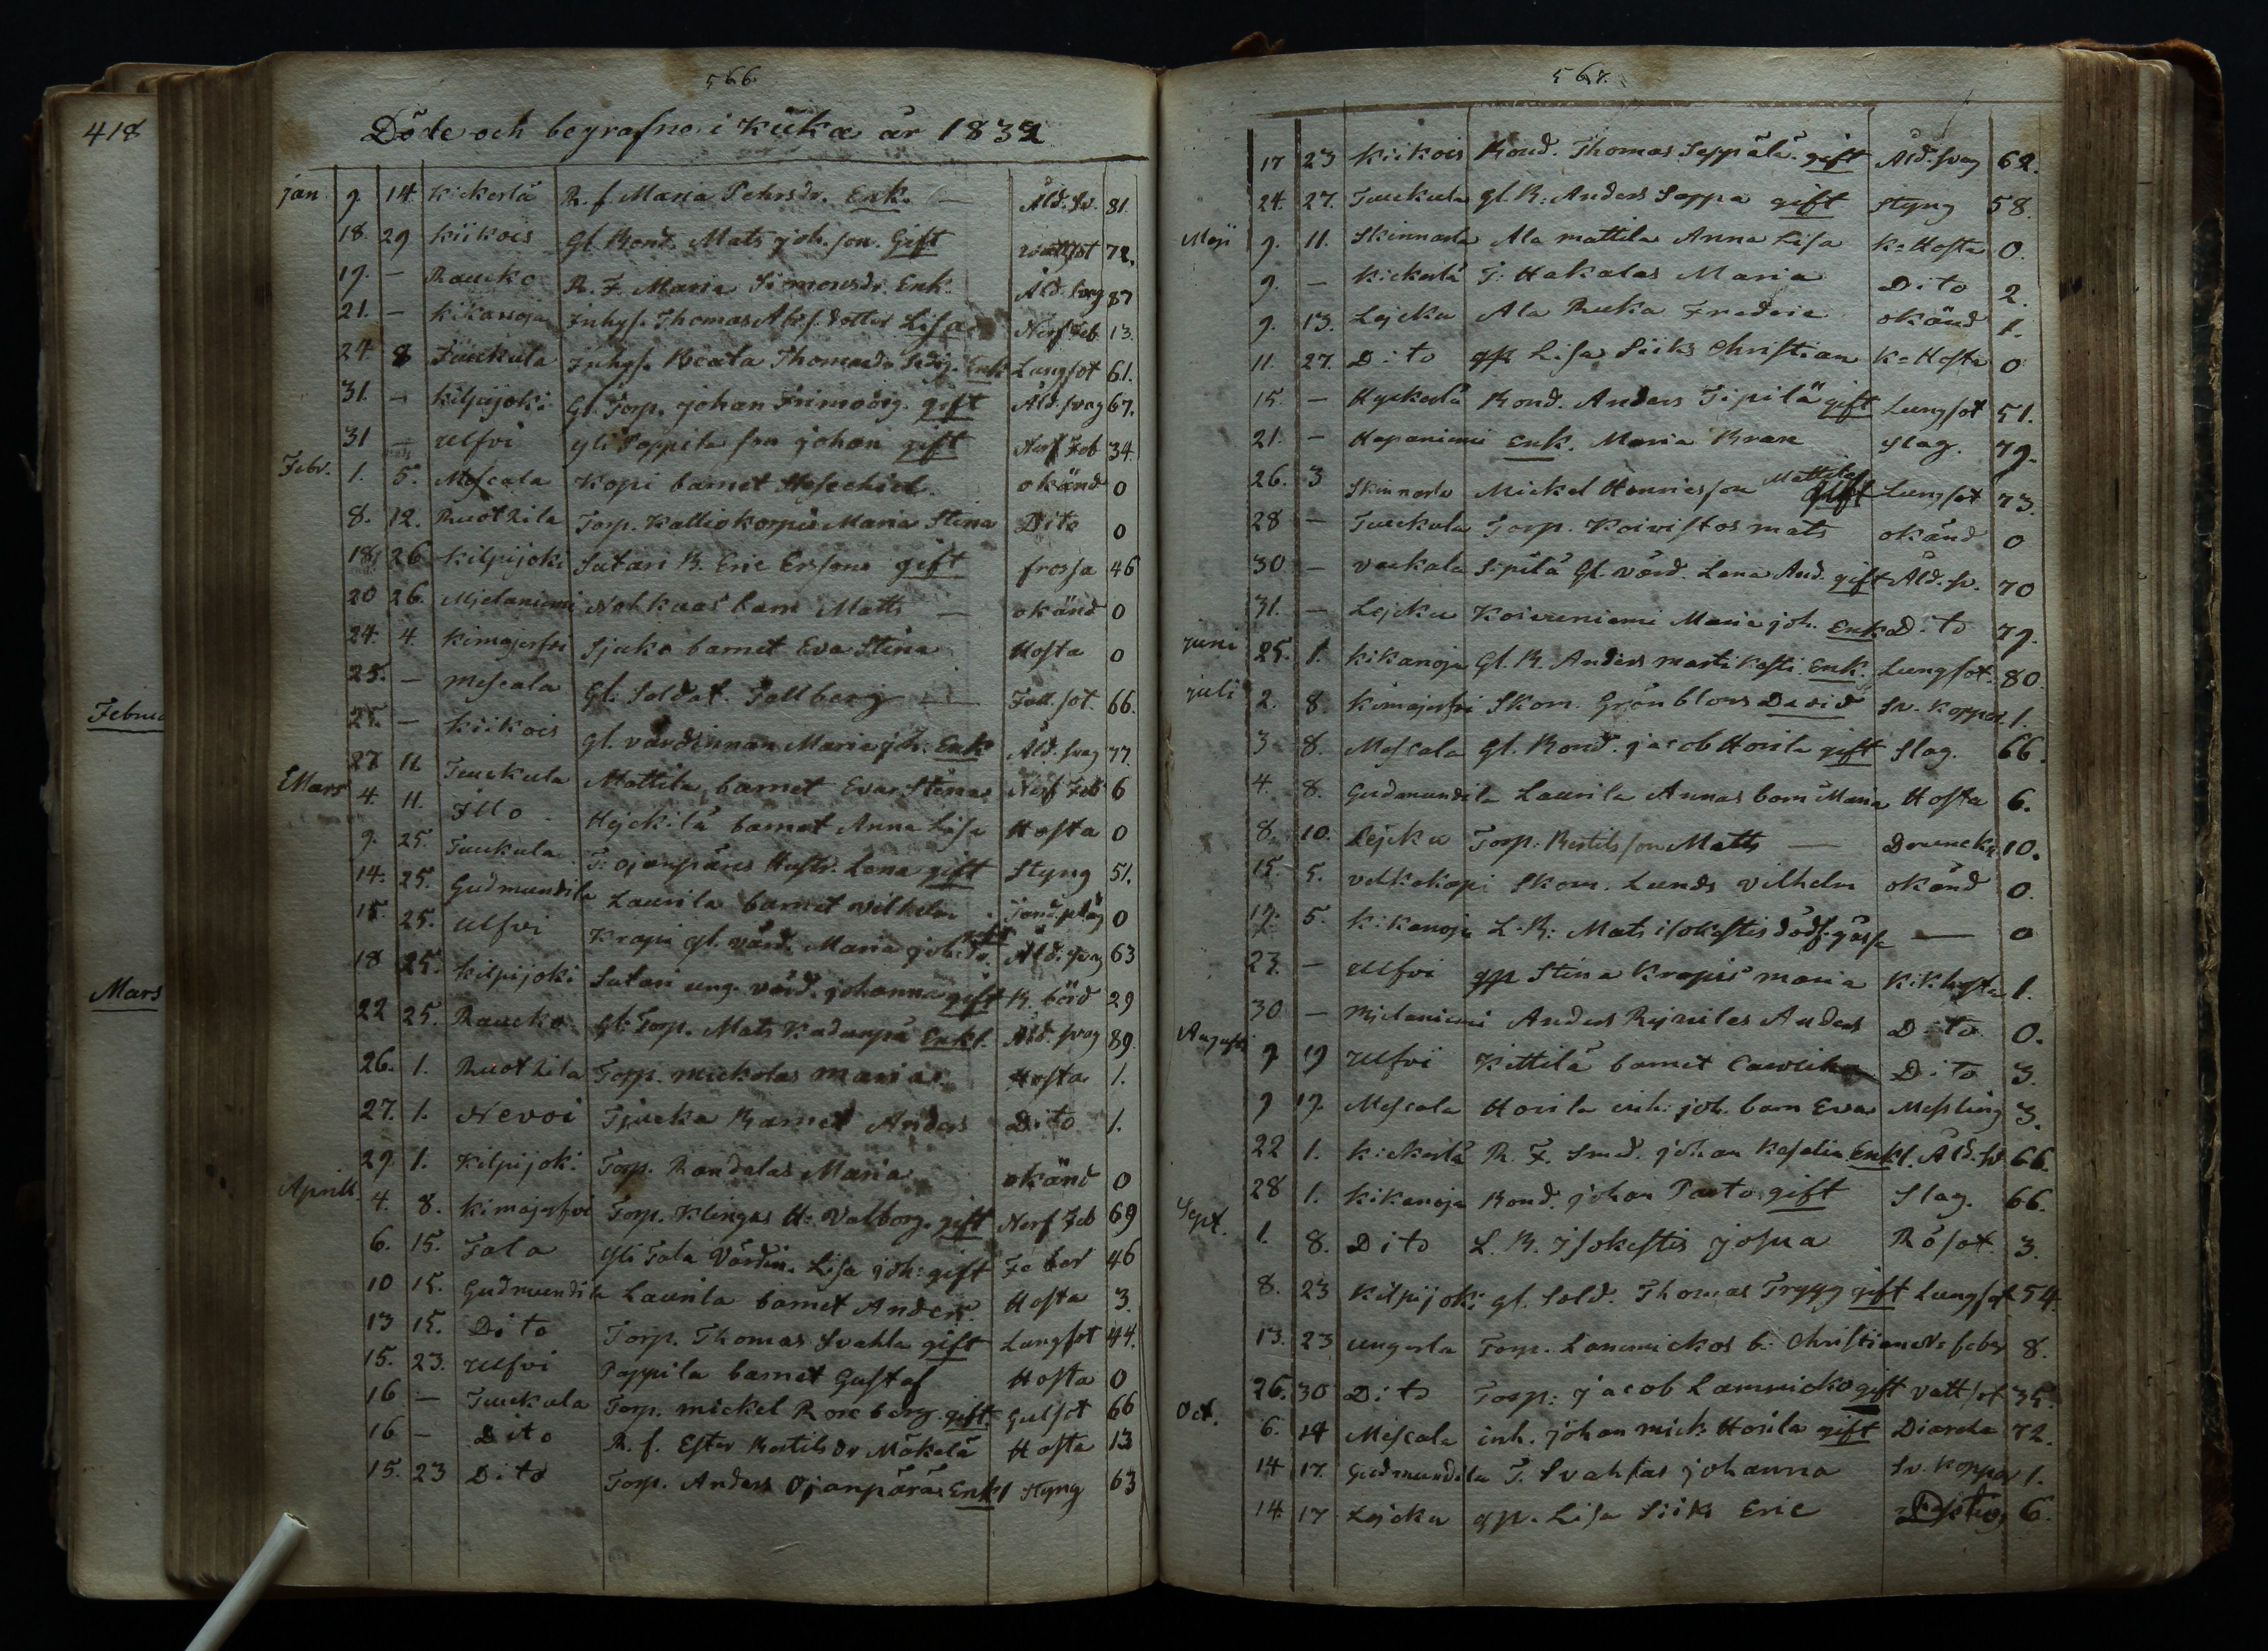 418
Februa
Mars
566
Döde och begrafne i Kiika år 1832
jan. 9. 14. Kickerlä R. f. Maria Pehrsdr. Enk. Åld. Sv. 81.
18. 29 Kiikois Gl. Bond. Mats joh. son. Gift wattsot 72.
19. — Raucko R. F. Maria Simonsdr. Enk. Åld. svag 87
21. — Kikanoja Inhys. Thomas Abr. s. dotter Lisa Nerf Feb 13.
24 8 Tuckula Inhys. Beata Thomasdr Enk Lungsot 61.
31. — Kilpijoki Gl. Torp. johan gift Åld. svag 67.
31 — Ulfvi yli Pappila son johan gift Nerf Feb 34.
Febr. 1. 5. Mescala Kopi barnet Hesechiel. okänd 0
8. 12. Ruotzila Torp. Kalliokorpis Maria Stina Dito 0
18 26 Kilpijoki Sutari B. Eric Ersson gift frossa 46
20 26. Mjelaniemi Nohkuas barn Matts — okänd 0
24. 4. Kimajerfvi Sjuko barnet Eva Stina Hosta 0
25. — Mescala Gl. Soldat. Fallberg — Fall. sot. 66.
25. — Kiikois Gl. värdinnan Maria joh. Enk Åld. svag 77.
27 11 Tuckula Mattila barnet Eva Stina Nerf Feb 6
Mars 4. 11. Illo. Hejckilä barnet Anna Lisa Hosta 0
9. 25. Tuckula. T. Ojanpäres Hustr. Lena gift Styng 51.
14. 25. Gudmundila Laurila barnet vilhelm Tand. plåg 0
15. 25. Ulfvi Krapi gl. värd. Maria joh. dr. gift Åld. svag 63
18 25. Kilpijoki Sutari ung. värd. johanna gift B. börd 29
22 25. Raucko Gl. Torp. Mats Kadunpä Enkl. Åld. svag 89.
26. 1. Ruotzila Torp. mickolas Maria. Hosta 1.
27. 1. Nevoi Tjucka Barnet Anders Dito 1.
29. 1. Kilpijoki Torp. Randalas Maria okänd 0
Aprill 4. 8. Kimajerfvi Torp. Klingas H: Valborg. gift Nerf Feb 69
6. 15. Tala yli Tala Värdin. Lisa joh: gift Feber 46
10 15. Gudmundila Laurila barnet Anders. Hosta 3.
13 15. Dito Torp. Thomas Svahla gift Lungsot 44.
15. 23. Ulfvi Pappila barnet Gustaf Hosta 0
16 — Tuckula Torp. mickel Roseberg. gift Gulsot 66
16 — Dito R. f. Ester Bertilsdr Mäkelä Hosta 13
15. 23 Dito Torp. Anders Ojanpäräs Enkl Styng 63
567.
17 23 Kiikois Bond. Thomas Seppälä. gift Åld. svag 62.
24. 27. Tuckula gl. B: Anders Seppa gift Styng 58.
Maji 9. 11. Skinnarla Ala mattila Anna Lisa K=Hosta 0.
9. — Kickerlä T: Hakalas Maria Dito 2.
9. 13. Lejcku Ala Ruka Fredric okänd 1.
11. 27. Dito qp Lisa Siiks Christian K=Hosta 0
15. — Hyckerlä Bond. Anders Sipilä gift Lungsot 51.
21. — Hapaniemi Enk. Maria Brax Slag. 79.
26. 3 Skinnarla Mickel Henricsson Mattila gift Lungsot 73.
28 — Tuckula Torp. Koivistos mats okänd 0
30 — vackala Sipilä Gl. värd. Lena And. gift Åld. sv. 70
31. — Lejcku Koivuniemi Maria joh. Enk Dito 79.
juni 25. 1. Kikanoja Gl. B. Anders marti Kesti. Enk. Lungsot. 80.
juli 2. 8. Kimajerfvi Skom. Grönbloms David Sv. Koppor 1.
3. 8. Mescala Gl. Bond. jacob Horila gift Slag. 66.
4. 8. Gudmundila Laurila Annas barn Maria Hosta 6.
8. 10. Lejcku Torp. Bertilsson Matts — Drunck. 10.
15. 5. vehkekopi Skom. Lunds vilhelm okänd 0.
19. 5. Kikanoja L. B: Mats isokestis dödf. gåsse — 0
23. — Ulfvi qp Stina Krapis maria Kikhosta 1.
30 — Mjelaniemi Anders Anders Dito 0.
Augusti 9 19 Ulfvi Kittilä barnet Carolina Dito 3.
9 19. Mescala Horila inh: joh. barn Eva Messling 3.
22 1. Kickerlä R. F. Smed. johan Keselin Enkl. Åld. Sv. 66.
28 1. Kikanoja Bond. johan Parto gift Slag. 66.
Sept. 1. 8. Dito L. B. Isokestis josua Rösot. 3.
8. 23 Kilpijoki gl. Sold. Thomas Trygg gift Lungsot 54.
13. 23 ungerla Torp. Lammickos b: Christian feber 8.
26. 30 Dito Torp: jacob Lammicko gift vattsot 35.
Oct. 6. 14 Mescala inh. johan mick: Horila gift Diarrha 72.
14 17. Gudmundila T. Svahlas johanna Sv. Koppor 1.
14. 17 Lejcku qp. Lisa Siiks Eric 6.